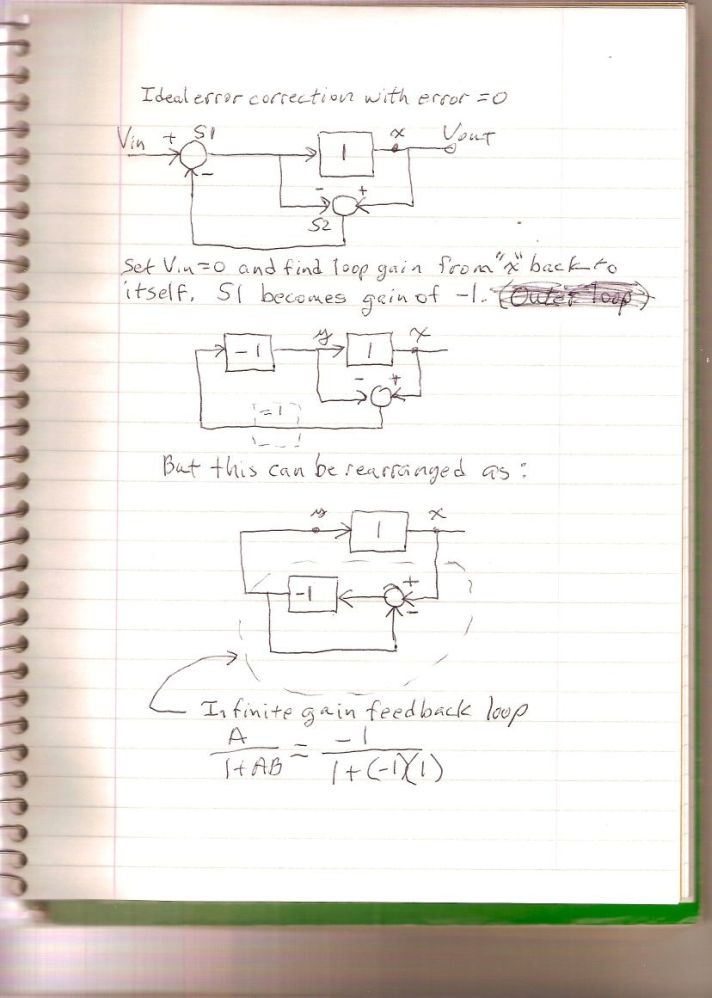 Ideal error correction with error = 0
Vin + S1 x Vout
1
- - +
S2
Set Vin=0 and find loop gain from "x" back to
itself. S1 becomes gain of -1. (Outer loop)
y x
-1 1
- +
=1
But this can be rearranged as:
y x
1
-1 +
-
Infinite gain feedback loop
A / 1+AB = -1 / 1+(-1)(1)